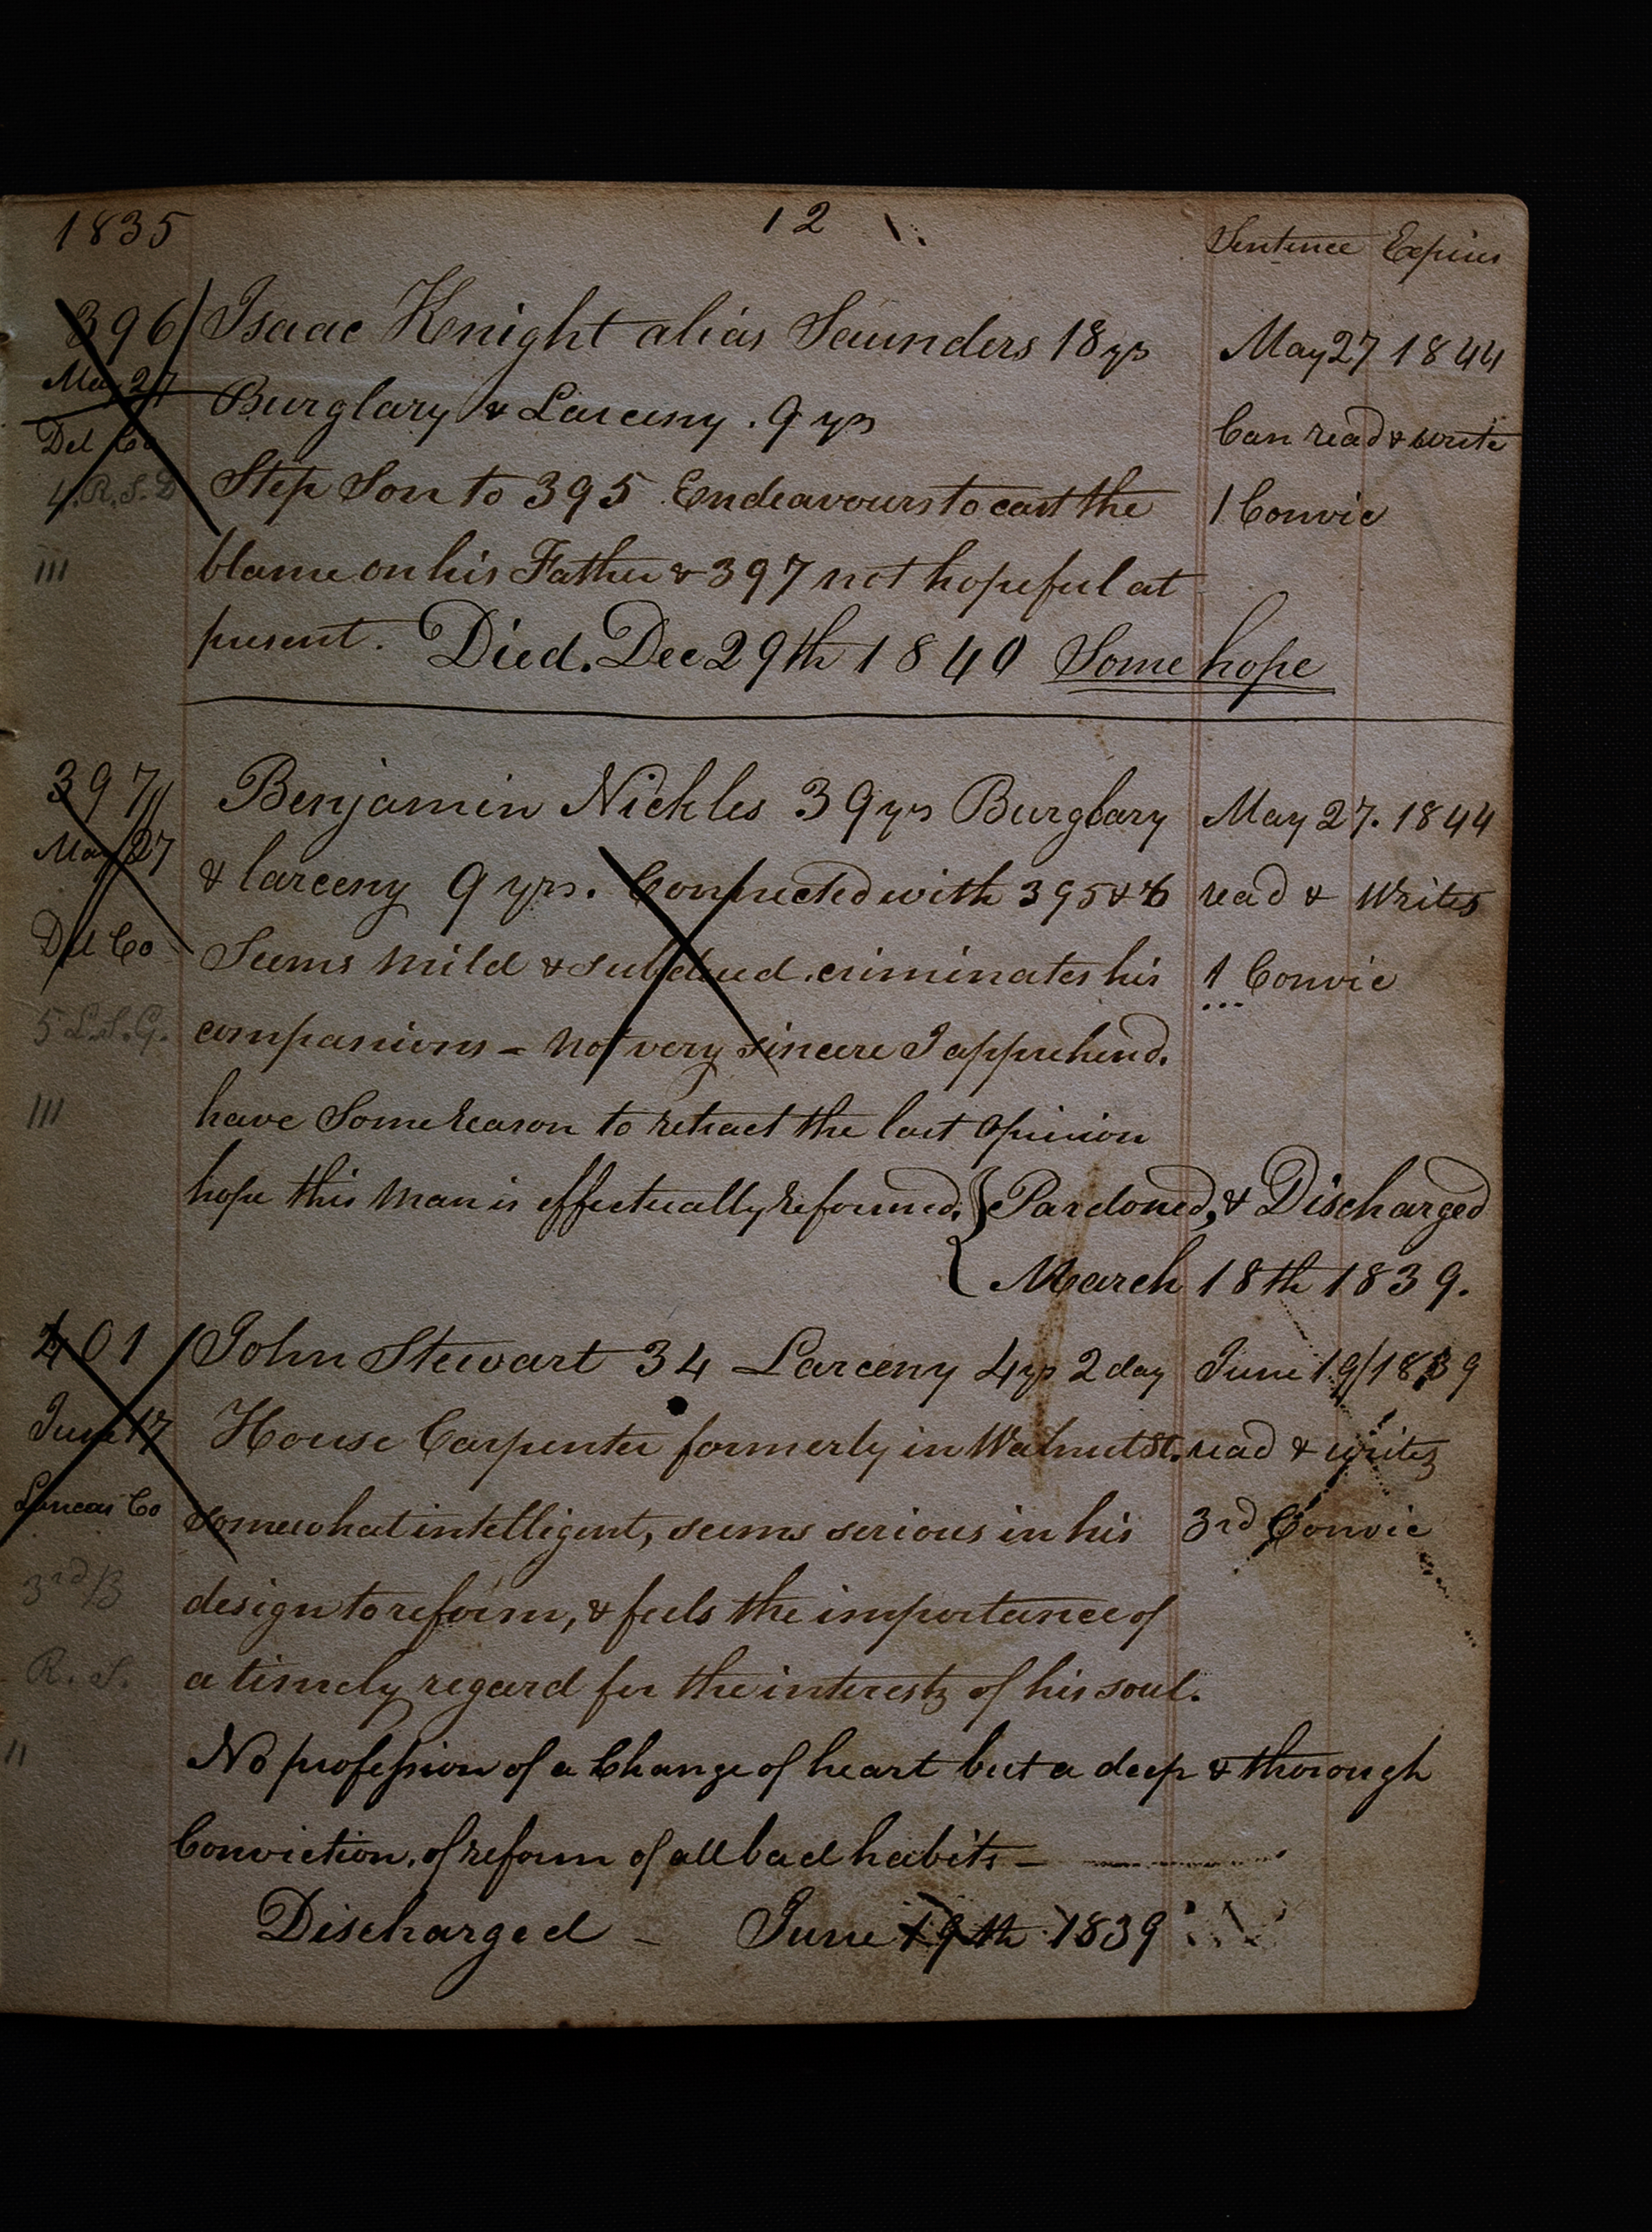 1835 12 Sentence Expires
396 Isaac Knight alias Saunders 18 yrs May 27 1844
May 27 Burglary & Larceny . 9 yrs Can read & write
Del Co Step Son to 395 Endeavours to cast the 1 Convic
4. R. S. D
III blame on his Father & 397 not hopeful at
present. Died. Dec 29th 1840 Some hope
397 Benjamin Nickles 39 yrs Burglary May 27. 1844
May 27 & larceny 9 yrs. Connected with 395 & 6 read & Writes
Del Co Seems mild & subdued . criminates his 1 Convic
5 L. S. G. companions - Not very sincere I apprehend.
III have Some reason to retract the last opinion
hope this Man is effectually reformed. } Pardoned, & Discharged
{ March 18th 1839.
401 John Stewart 34 Larceny 4 yrs 2 day June 19/1839
June 17 House Carpenter formerly in Walnut St. read & writes
Lancas Co Somewhat intelligent, seems serious in his 3rd Convic
3rd B design to reform, & feels the importance of
R. S. a timely regard for the interests of his soul.
II No profession of a Change of heart but a deep & thorough
Conviction. of reform of all bad habits -
Discharged - June 19th 1839